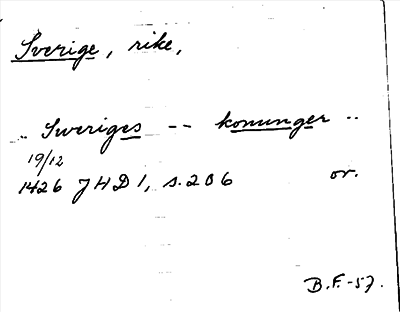 Sverige, rike,
.. Sweriges -- konunger ..
19/12
1426 JHD 1, s. 206 or.
B.F.-57.